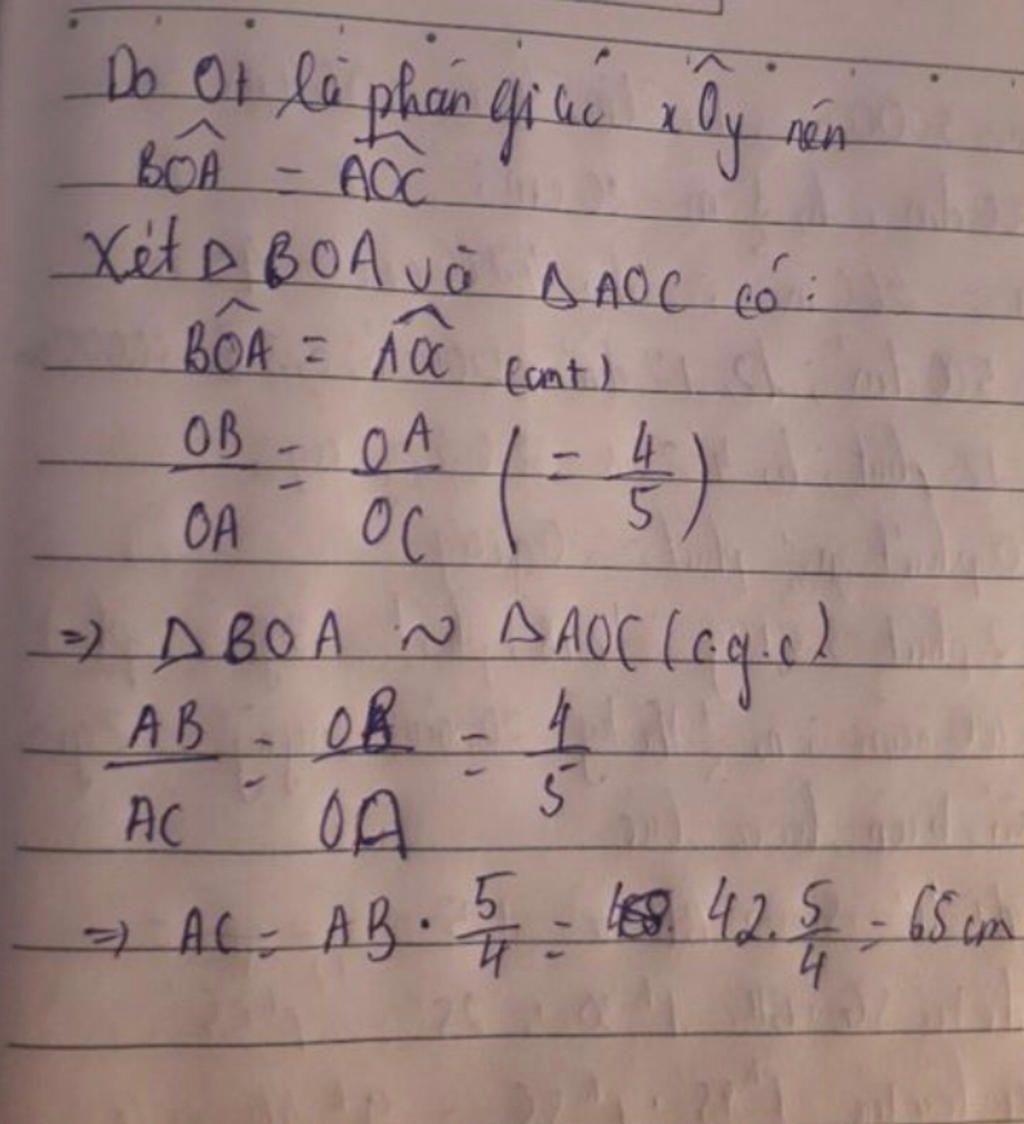 Do Ot là phân giác xÔy nên
BÔA = AÔC
Xét Δ BOA và Δ AOC có:
BÔA = AÔC (cmt)
OB/OA = OA/OC (= 4/5)
=> Δ BOA ~ Δ AOC (c.g.c)
AB/AC = OB/OA = 4/5
=> AC = AB . 5/4 = 42. 5/4 = 65 cm